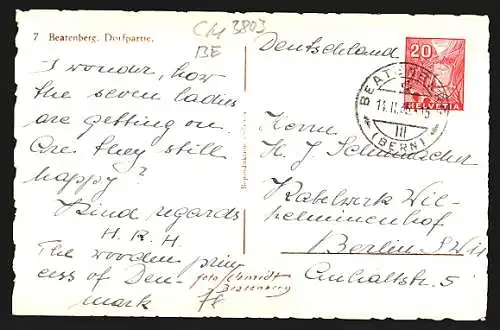 7 Beatenberg. Dorfpartie.
CH 3803
BE
I wonder, how
the seven ladies
are getting on.
Are they still
happy?
Kind regards
H. R. H.
The wooden prin
cess of Den-
mark
foto Schmidt
Beatenberg
Deutschland
20
HELVETIA
BEATENBERG
(BERN)
III
Herrn
H. J. Schumacher
Kabelwerk Wil-
helminenhof
Berlin SW 11
Anhaltstr. 5